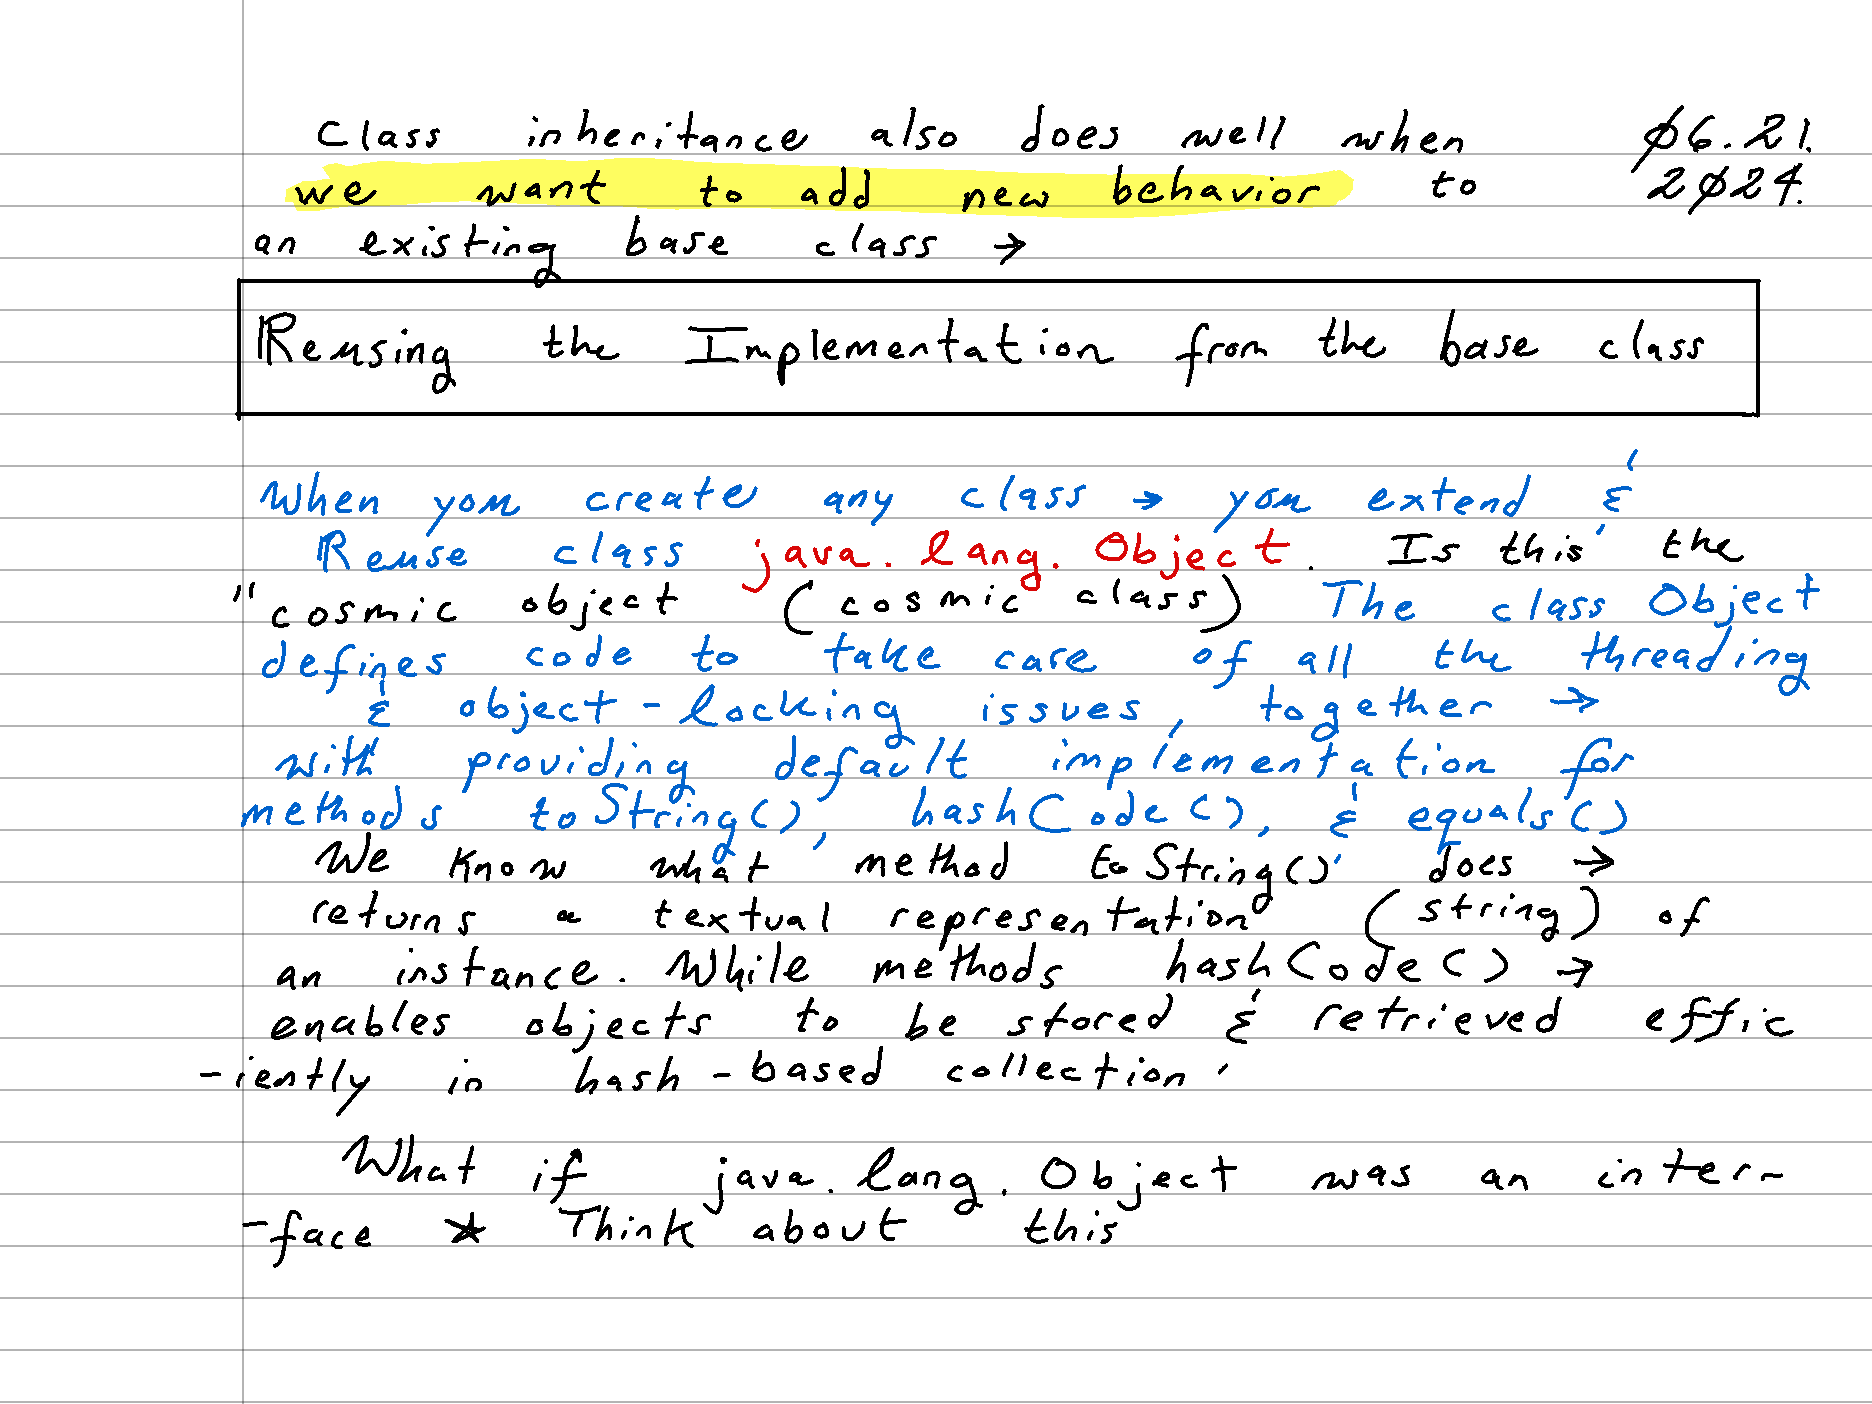 Class inheritance also does well when
we want to add new behavior to
an existing base class →
Ø6.21.
2Ø24.
Reusing the Implementation from the base class
When you create any class → you extend &
Reuse class java.lang.Object. Is this the
"cosmic object (cosmic class) The class Object
defines code to take care of all the threading
& object-locking issues, together →
with providing default implementation for
methods toString(), hashCode(), & equals()
We know what method toString() does →
returns a textual representation (string) of
an instance. While methods hashCode() →
enables objects to be stored & retrieved effic
-iently in hash-based collection.
What if java.lang.Object was an inter-
-face ★ Think about this